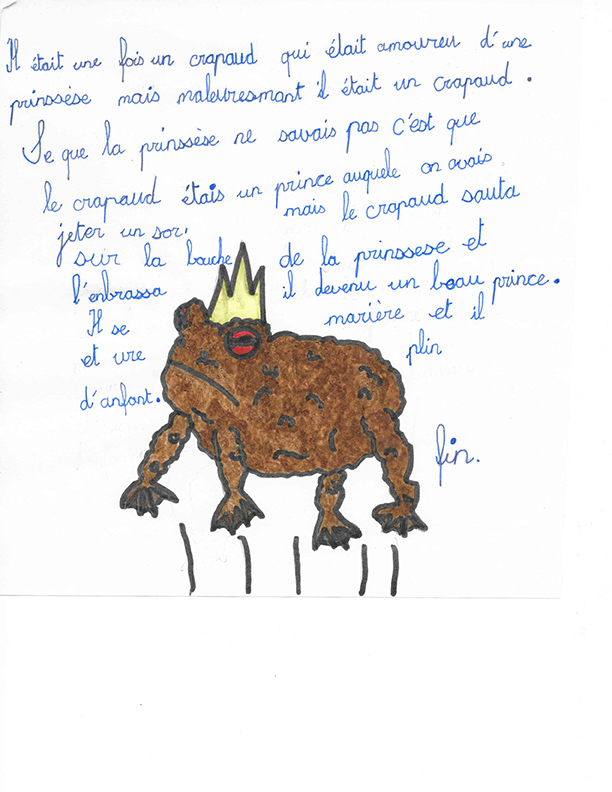 Il était une fois un crapaud qui était amoureu d'une
prinssèse mais maleuresmant il était un crapaud.
Se que la prinssèse ne savais pas c'est que
le crapaud étais un prince auquele on avais
jeter un sor, mais le crapaud sauta
sur la bouche de la prinssese et
l'enbrassa il devenu un beau prince.
Il se marière et il
et ure plin
d'anfant.
fin.